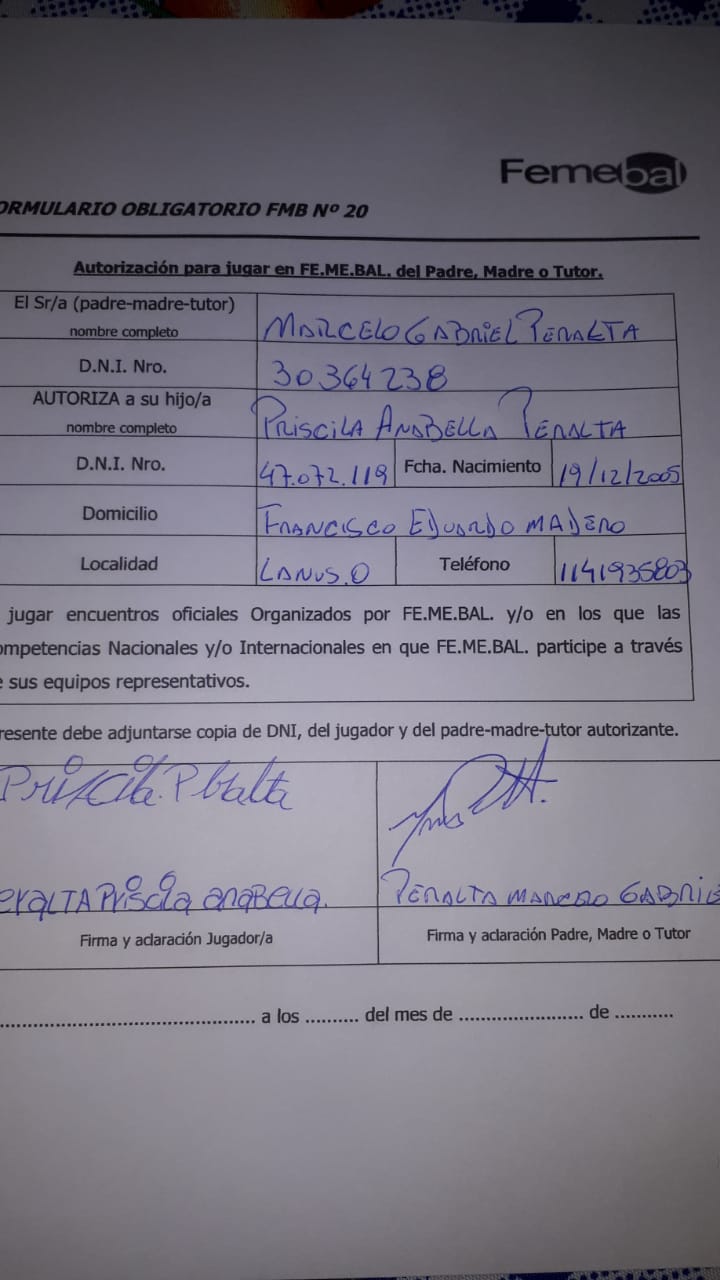 Femebal
ORMULARIO OBLIGATORIO FMB Nº 20
Autorización para jugar en FE.ME.BAL. del Padre, Madre o Tutor.
El Sr/a (padre-madre-tutor)
nombre completo
MARCELO GABRIEL PERALTA
D.N.I. Nro.
30364238
AUTORIZA a su hijo/a
nombre completo
PRISCILA ANABELLA PERALTA
D.N.I. Nro.
47.072.119
Fcha. Nacimiento
19/12/2005
Domicilio
FRANCISCO EDUARDO MADERO
Localidad
LANUS.O
Teléfono
1141935803
jugar encuentros oficiales Organizados por FE.ME.BAL. y/o en los que las
ompetencias Nacionales y/o Internacionales en que FE.ME.BAL. participe a través
e sus equipos representativos.
resente debe adjuntarse copia de DNI, del jugador y del padre-madre-tutor autorizante.
Priscila.
eralTA Priscila anabella.
PERALTA MARCELO GABRIE
Firma y aclaración Jugador/a
Firma y aclaración Padre, Madre o Tutor
............................................ a los .......... del mes de ....................... de ...........